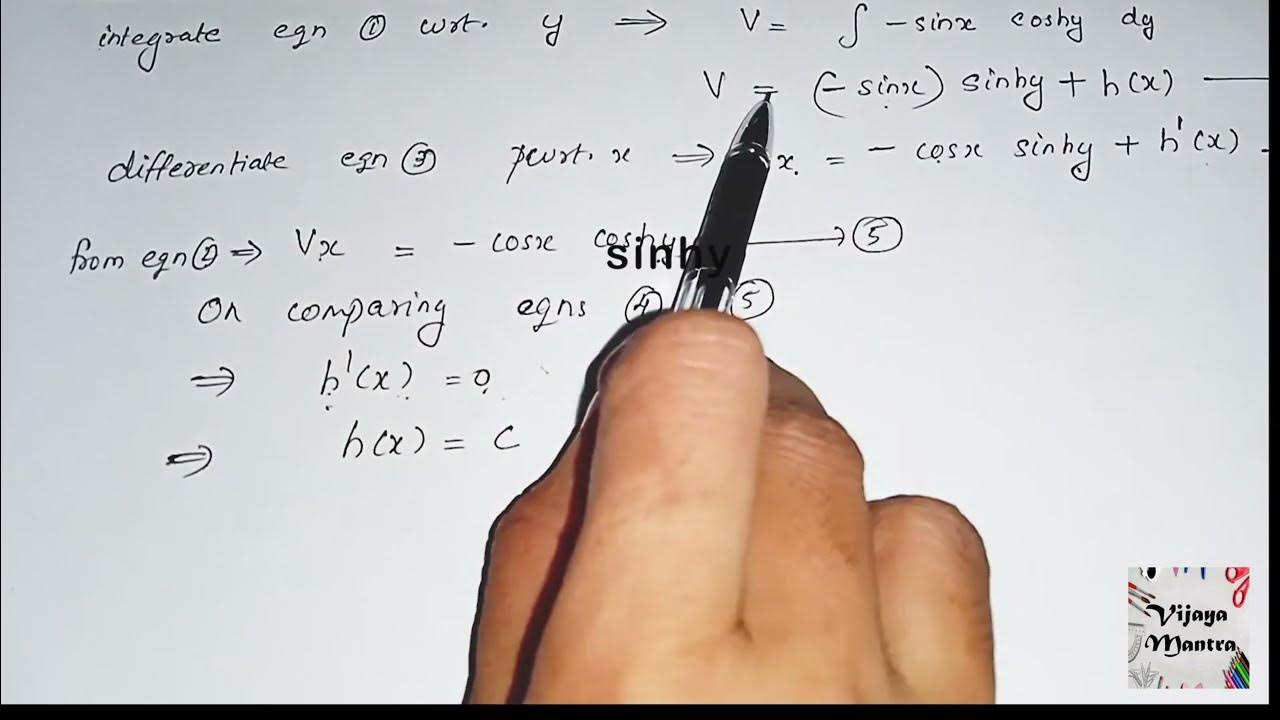 integrate eqn ① wrt. y ⇒ V = ∫ -sinx coshy dy
V = (-sinx) sinhy + h(x)
differentiate eqn ③ pwrt. x ⇒ x = - cosx sinhy + h'(x)
from eqn ② ⇒ Vx = - cosx coshy → ⑤
sinhy
On comparing eqns ④ ⑤
⇒ h'(x) = 0
⇒ h(x) = C
Vijaya
Mantra